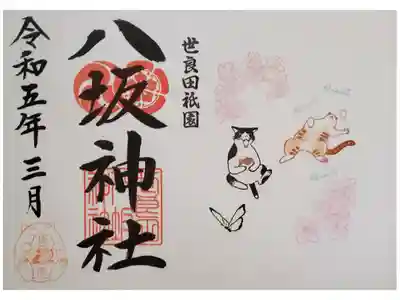 世良田祇園
八坂神社
令和五年三月